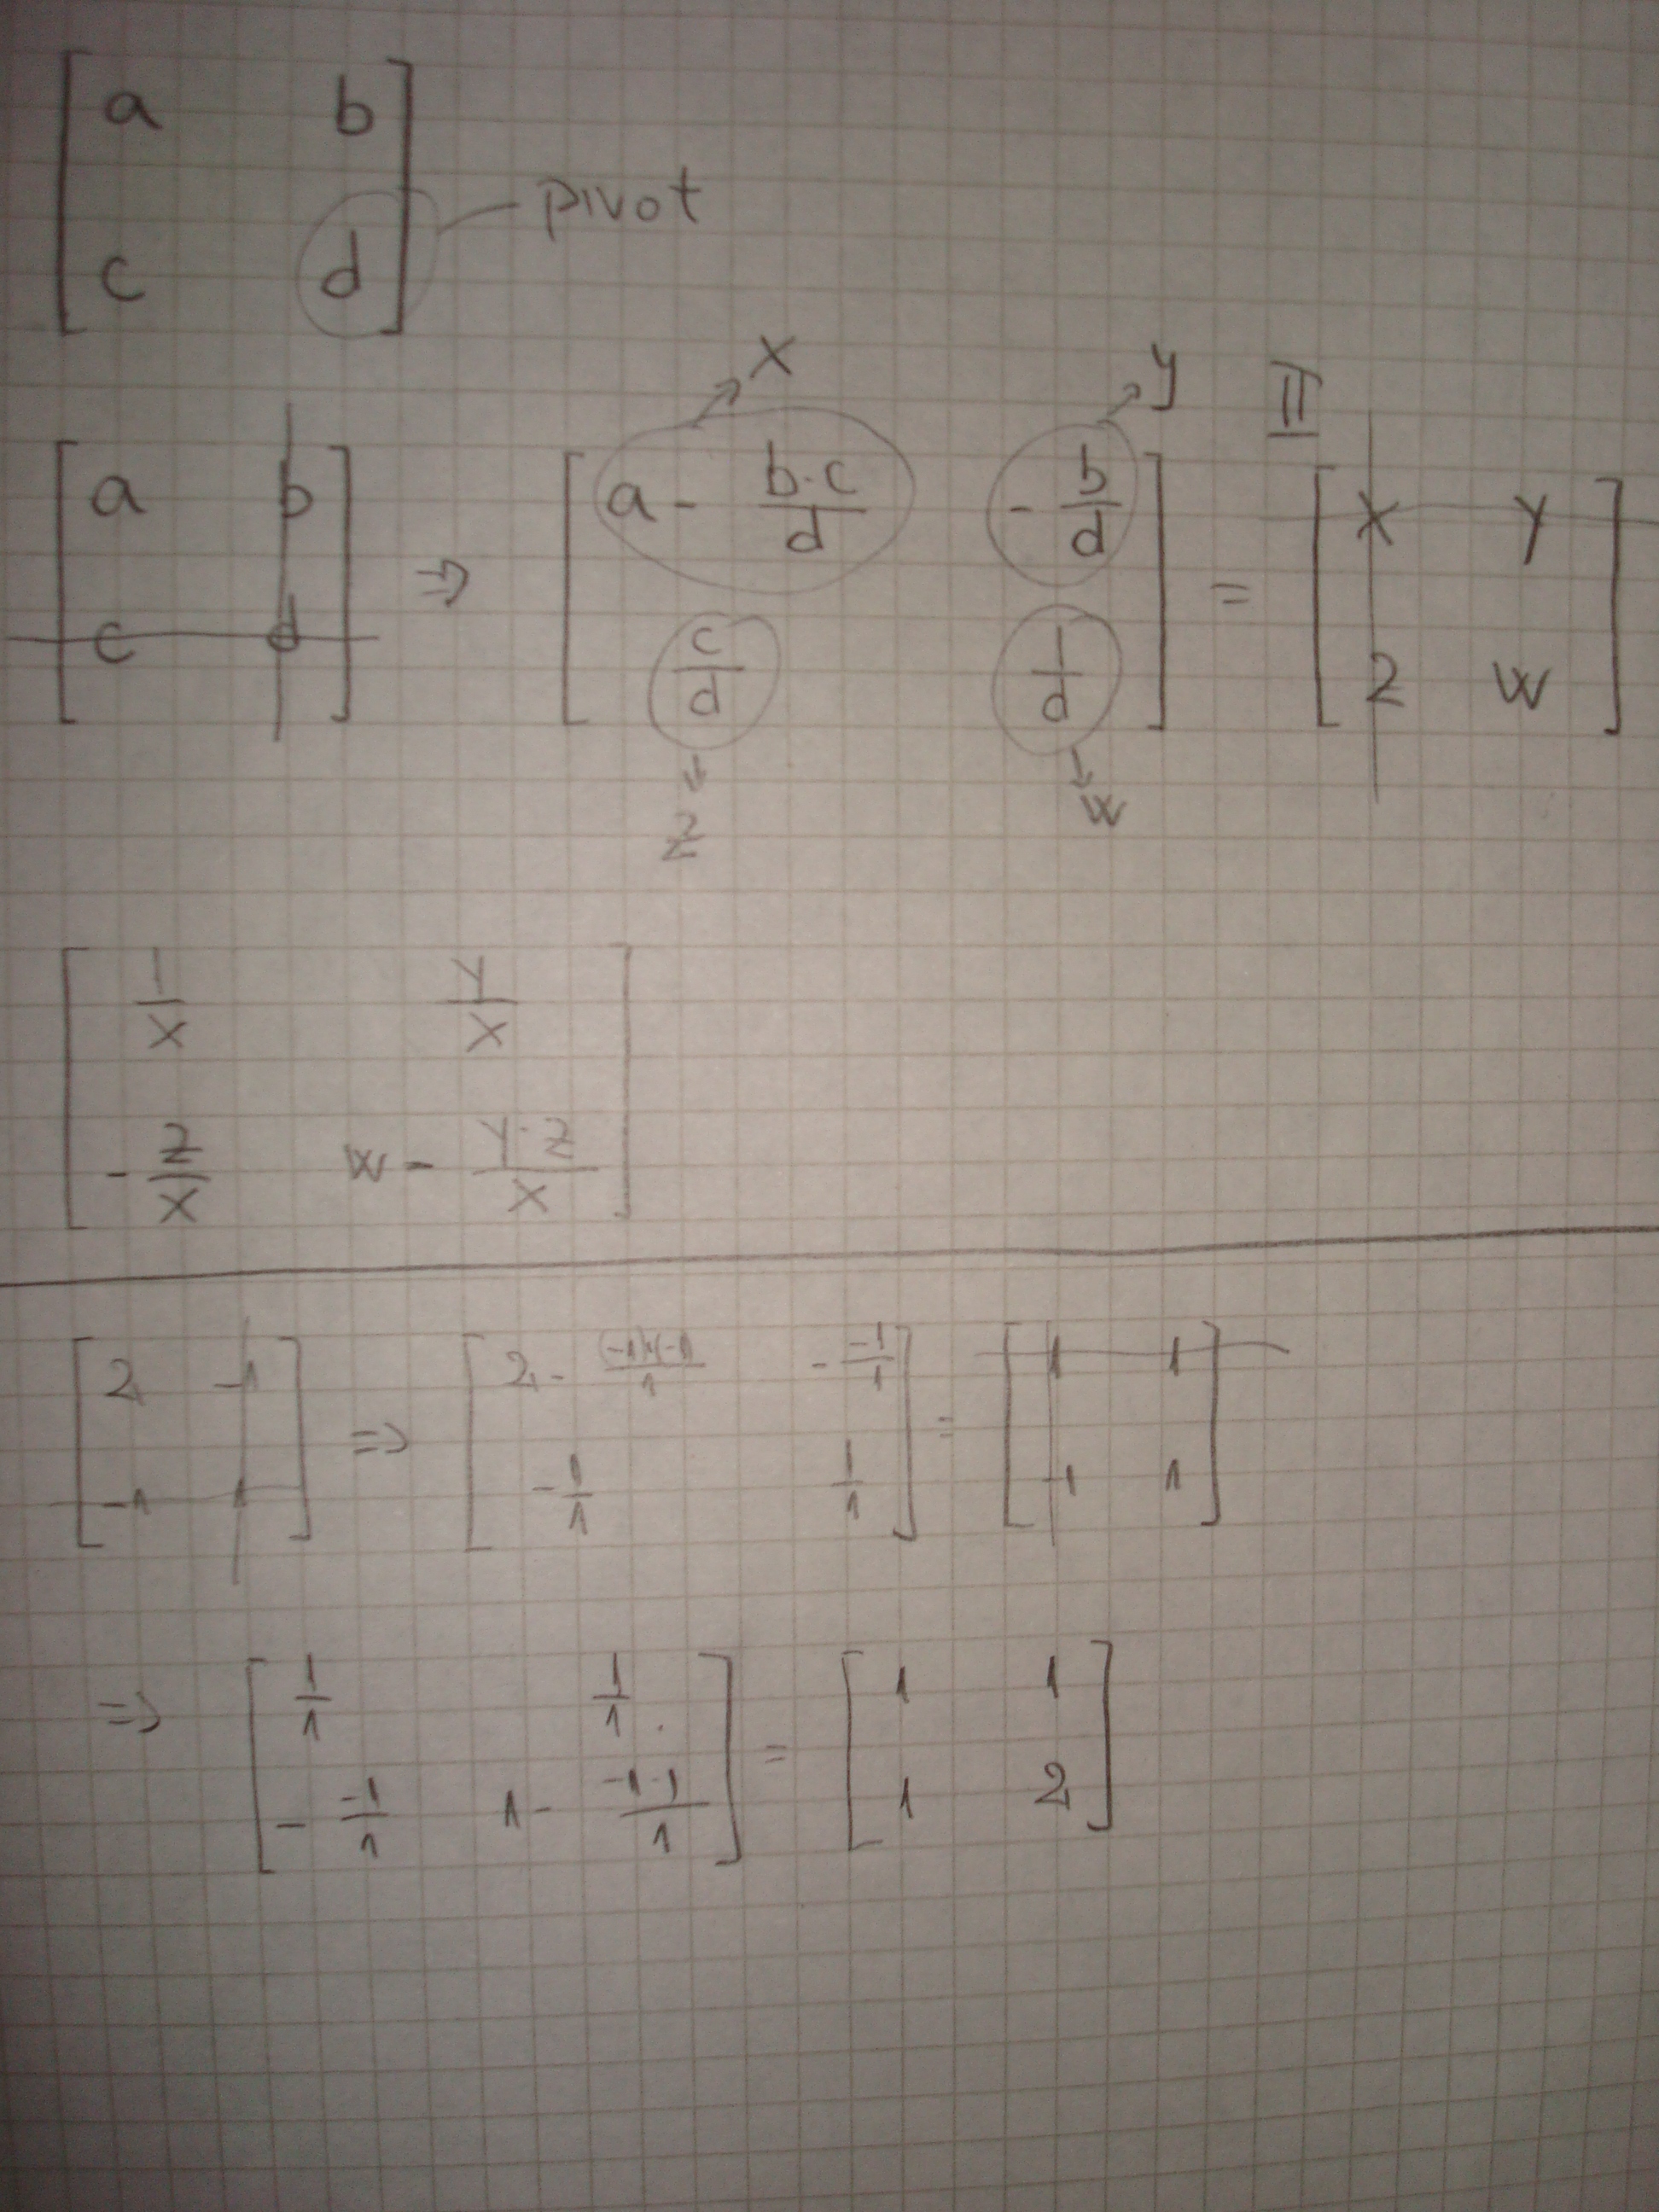 a b
c d pivot
x y II
a b ⇒ a - b·c/d - b/d = x y
c d c/d 1/d z w
z w
1/x y/x
- z/x w - y·z/x
2 -1 ⇒ 2 - (-1)·(-1)/1 - -1/1 = 1 1
-1 1 - 1/1 1/1 -1 1
⇒ 1/1 1/1 = 1 1
- -1/1 1 - -1·1/1 1 2